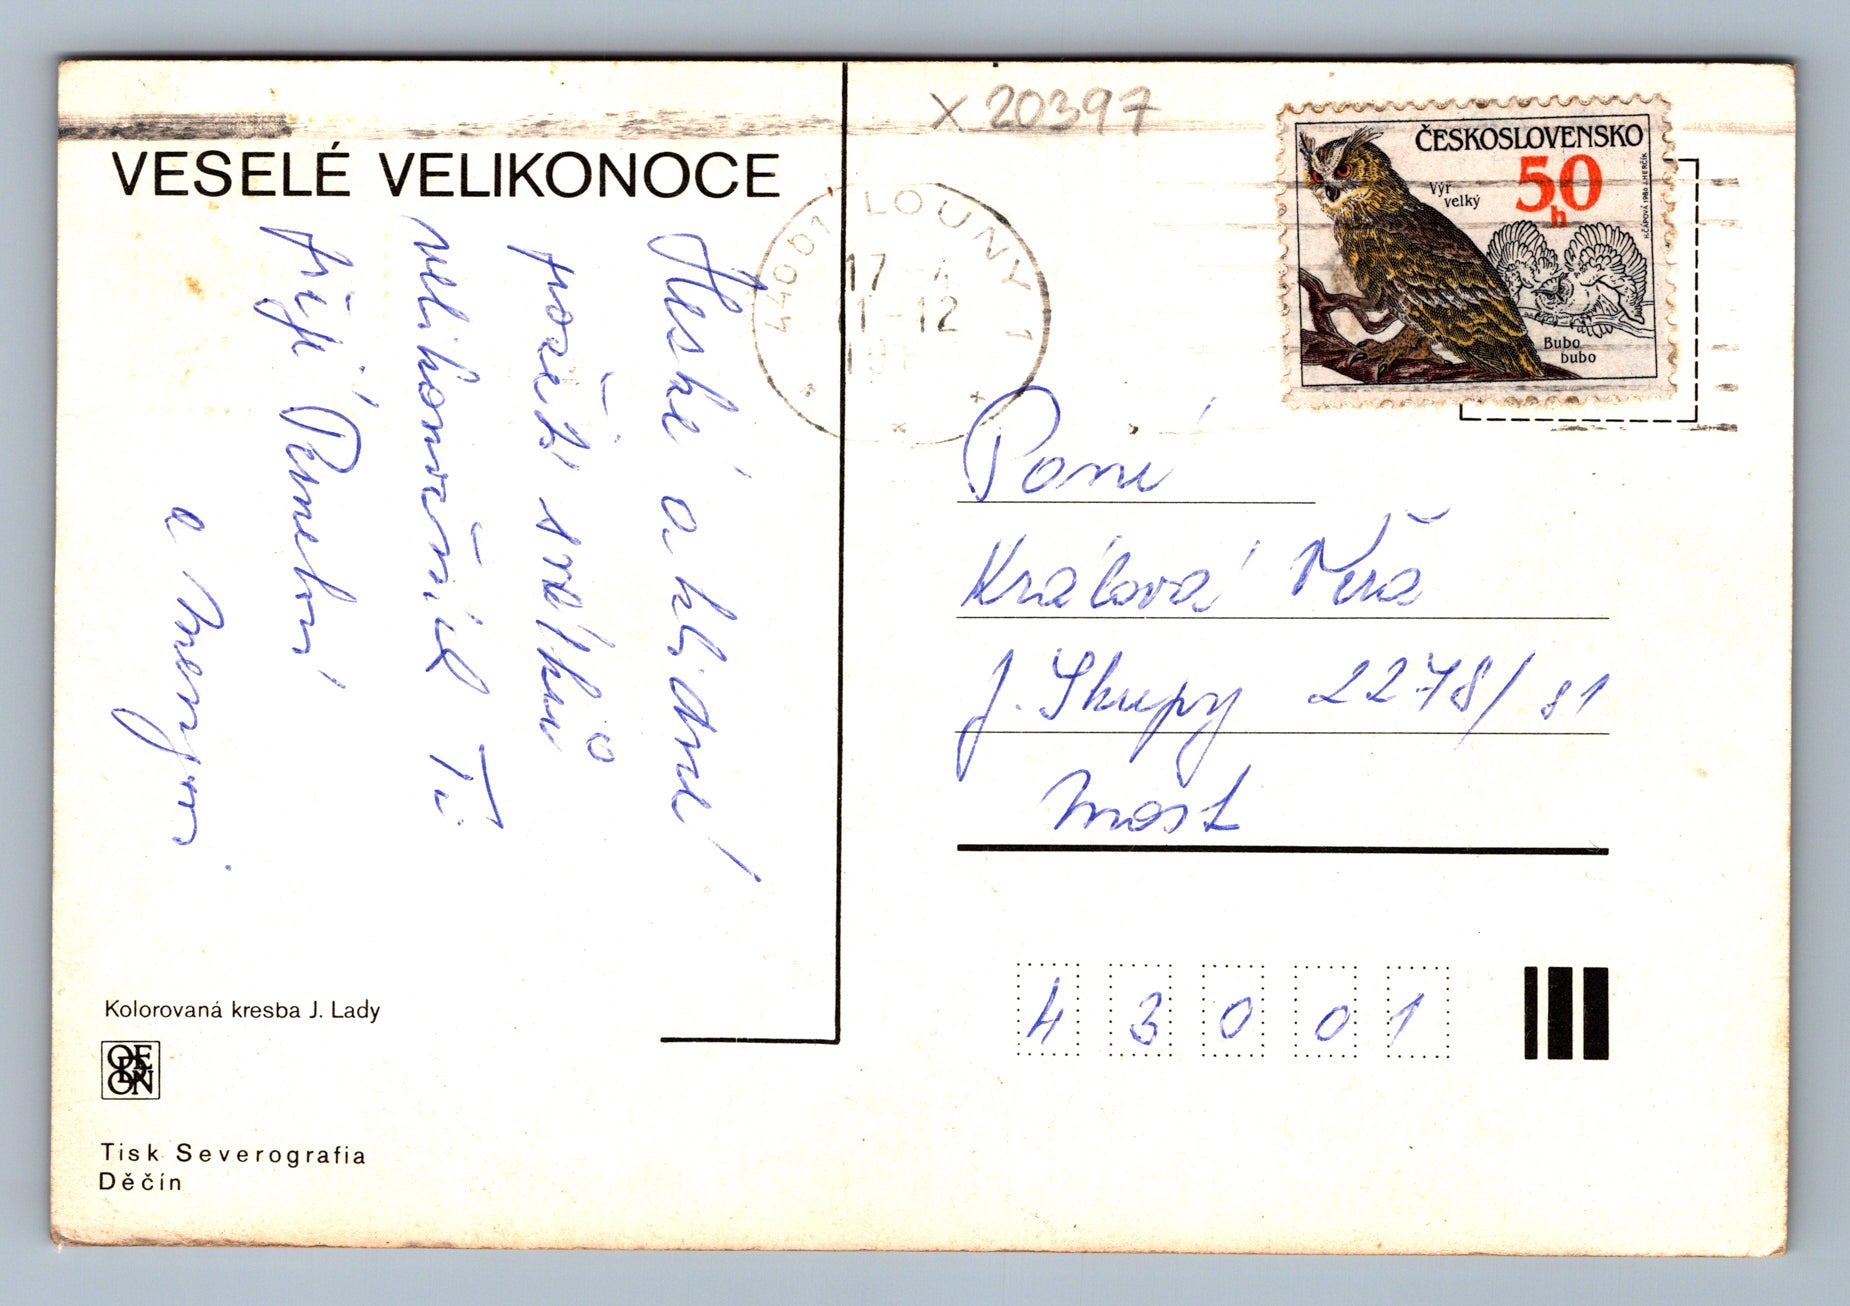 X 20397
VESELÉ VELIKONOCE
Hezké a klidné
prožití svátků
velikonočních Ti
přejí
a
44001 LOUNY 1
17 -4
11-12
ČESKOSLOVENSKO
50
h
Výr
velký
Bubo
bubo
H.ČÁPOVÁ 1986 J.HERČÍK
Paní
Králová Věra
J. Skupy 2278/81
Most
43001
Kolorovaná kresba J. Lady
ODEON
Tisk Severografia
Děčín